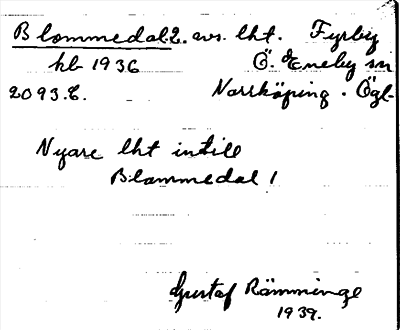 Blommedal 2. avs. lht. Fyrby
hb 1936 Ö. Eneby sn
2093.C. Norrköping. Ögl.
Nyare lht intill
Blommedal 1
Gustaf Rämminge
1939.